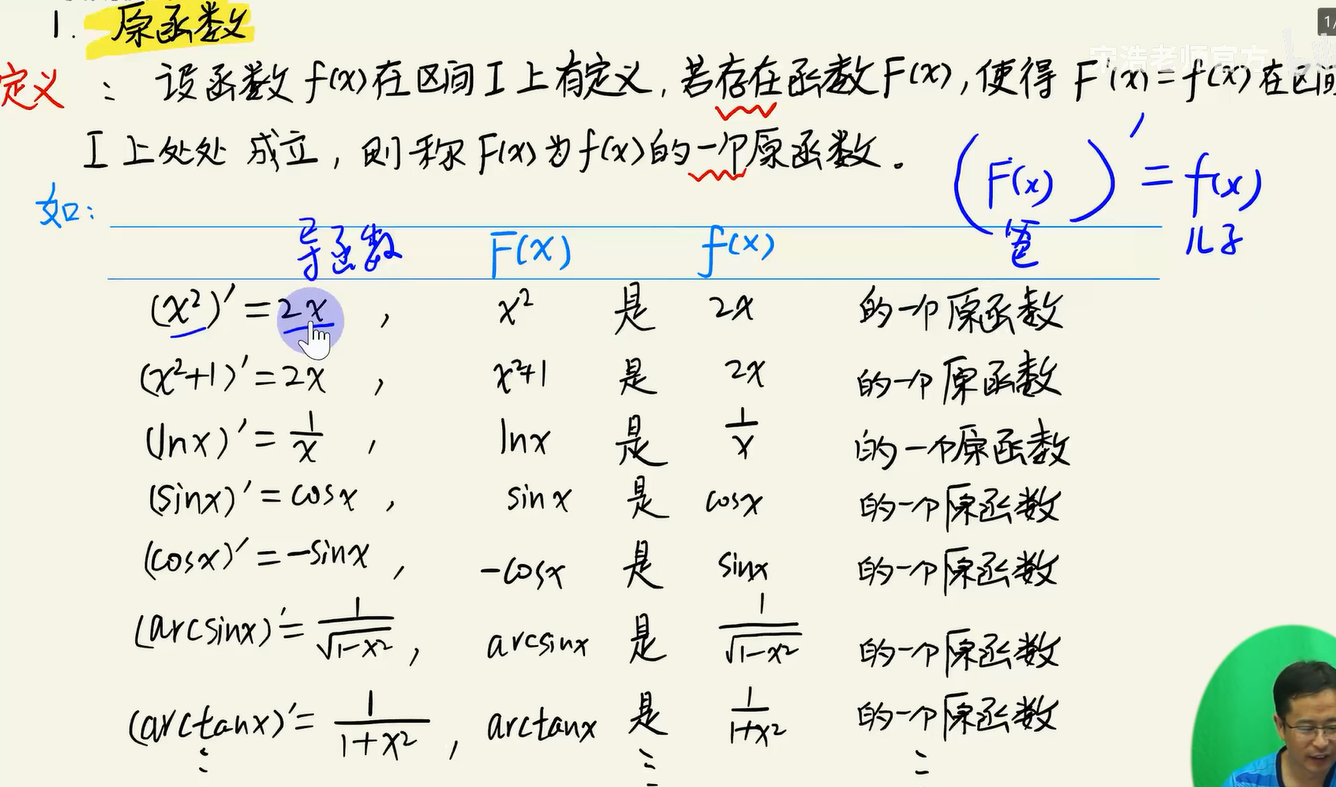 1. 原函数
定义：设函数 f(x)在区间I上有定义，若存在函数F(x)，使得 F'(x)=f(x)在区间
I上处处成立，则称F(x)为f(x)的一个原函数。
(F(x))' = f(x)
爸 儿子
如：
导函数 F(x) f(x)
(x²)'=2x， x² 是 2x 的一个原函数
(x²+1)'=2x， x²+1 是 2x 的一个原函数
(lnx)'=1/x， lnx 是 1/x 的一个原函数
(sinx)'=cosx， sinx 是 cosx 的一个原函数
(cosx)'=-sinx， -cosx 是 sinx 的一个原函数
(arcsinx)'=1/√(1-x²)， arcsinx 是 1/√(1-x²) 的一个原函数
(arctanx)'=1/(1+x²)， arctanx 是 1/(1+x²) 的一个原函数
⋮ ⋮ ⋮